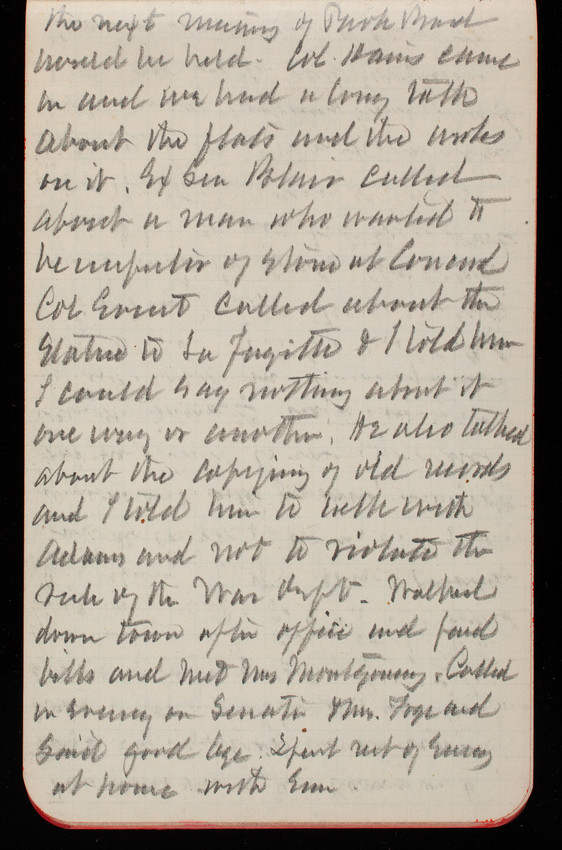 the next meeting of Park Board
would be held. Col. Hains came
in and we had a long talk
about the flats and the works
on it. Ex Sen Blair called
about a man who wanted to
be inspector of stone at Concord
Col Ernst called about the
Statue to La Fayette & I told him
I could say nothing about it
one way or another. He also talked
about the copying of old records
and I told him to talk with
Adams and not to violate the
rule of the War Dept. Walked
down town after office and paid
bills and met Mrs Montgomery. Called
in evening on Senator & Mrs. and
said good bye. Spent rest of evening
at home with Em